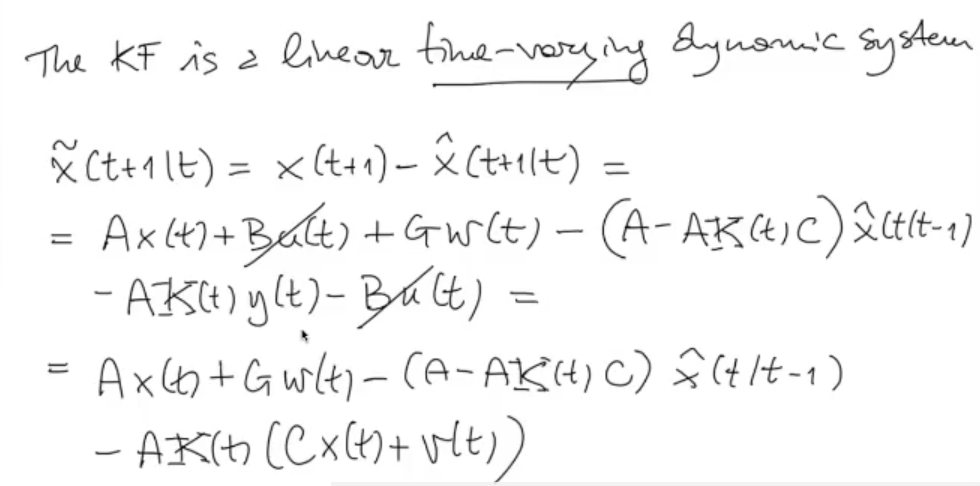 The KF is a linear time-varying dynamic system
x̃(t+1|t) = x(t+1) - x̂(t+1|t) =
= Ax(t) + Bu(t) + Gw(t) - (A - AK(t)C) x̂(t|t-1)
- AK(t) y(t) - Bu(t) =
= Ax(t) + Gw(t) - (A - AK(t)C) x̂(t/t-1)
- AK(t) (Cx(t) + v(t))